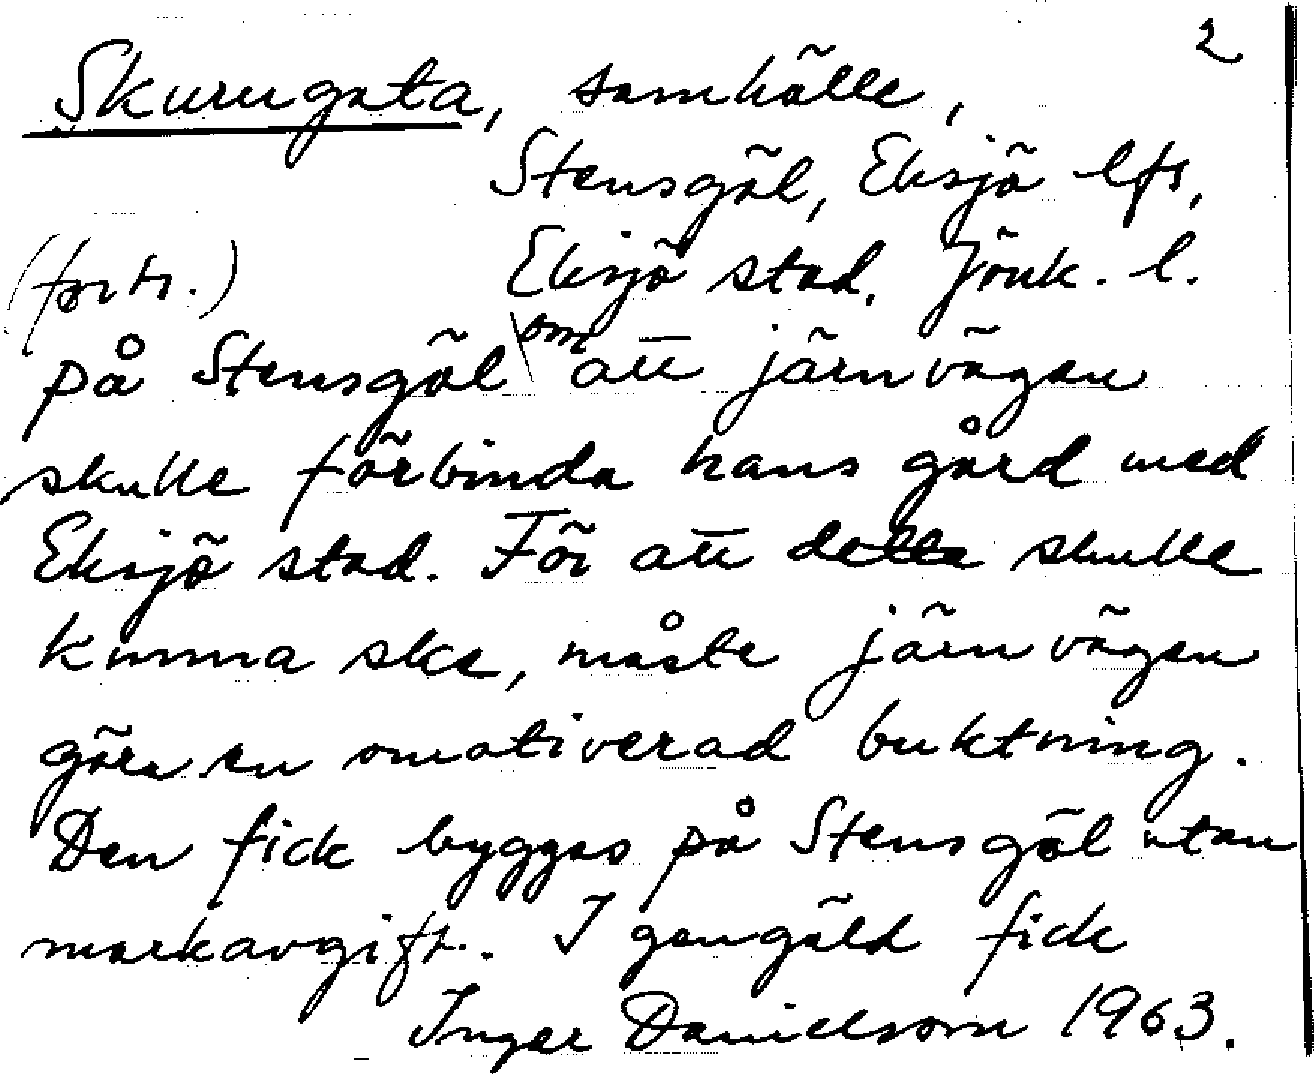 2
Skurugata, samhälle,
Stensgöl, Eksjö lfs,
(forts.) Eksjö stad. Jönk. l.
på Stensgöl om att järnvägen
skulle förbinda hans gård med
Eksjö stad. För att detta skulle
kunna ske, måste järnvägen
göra en omotiverad buktning.
Den fick byggas på Stensgöl utan
markavgift. I gengäld fick
Inger Danielsson 1963.